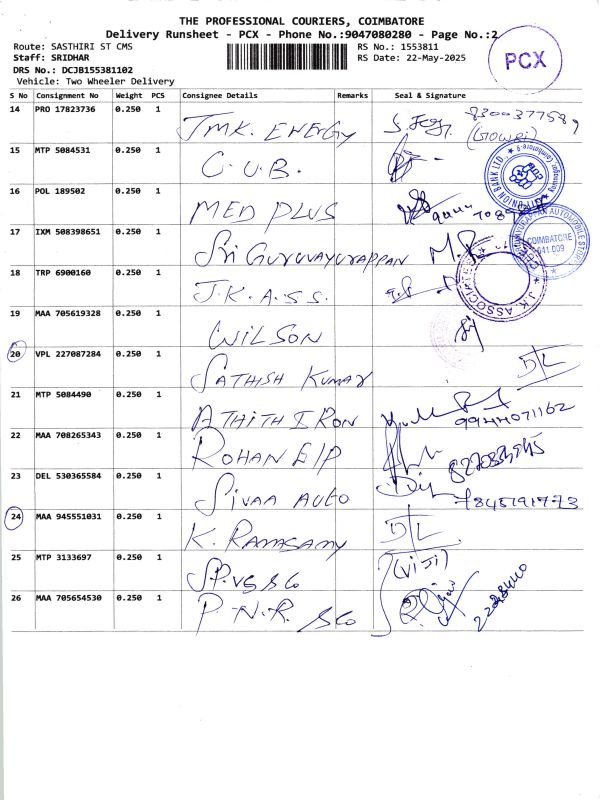 THE PROFESSIONAL COURIERS, COIMBATORE
Delivery Runsheet - PCX - Phone No.:9047080280 - Page No.:2
Route: SASTHIRI ST CMS
RS No.: 1553811
Staff: SRIDHAR
RS Date: 22-May-2025
PCX
DRS No.: DCJB155381102
Vehicle: Two Wheeler Delivery
S No Consignment No Weight PCS Consignee Details Remarks Seal & Signature
14 PRO 17823736 0.250 1 JMK. ENERGY 8300377589 (Gowri)
15 MTP 5084531 0.250 1 C.U.B.
16 POL 189502 0.250 1 MED PLUS
17 IXM 508398651 0.250 1 Sri GURUVAYURAPPAN
COIMBATORE
641 009
18 TRP 6900160 0.250 1 J.K. A.S.S.
J.K. ASSOCIATE
19 MAA 705619328 0.250 1 WILSON
20 VPL 227087284 0.250 1 SATHISH KUMAR D/L
21 MTP 5084490 0.250 1 ATHITH IRON 9944071162
22 MAA 708265343 0.250 1 ROHAN EIP
23 DEL 530365584 0.250 1 SIVAA AUTO 7845191773
24 MAA 945551031 0.250 1 K. RAMASAMY D/L
25 MTP 3133697 0.250 1 SP.VS & Co (VIJI)
26 MAA 705654530 0.250 1 P.N.R. & Co